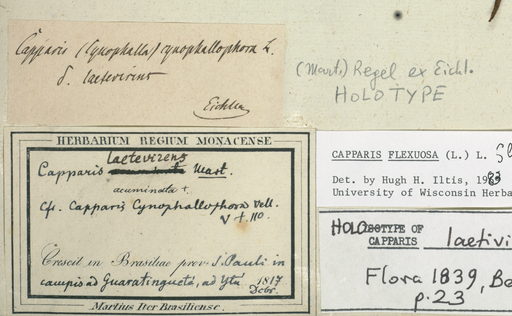 Capparis (Cynophalla) cynophallophora L.
δ. laetevirens
Eichler
(Mart.) Regel ex Eichl.
HOLOTYPE
HERBARIUM REGIUM MONACENSE
laetevirens
Capparis acuminata Mart.
acuminata +.
Cfr. Capparis Cynophallophora Vell.
V t. 110.
Crescit in Brasiliae prov. S. Pauli in
campis ad Guaratinguetá, ad Ytu 1817
Decbr.
Martius Iter Brasiliense.
CAPPARIS FLEXUOSA (L.) L.
Det. by Hugh H. Iltis, 1963
University of Wisconsin Herba
HOLOTYPE OF
CAPPARIS laetivi
Flora 1839, Be
p. 23